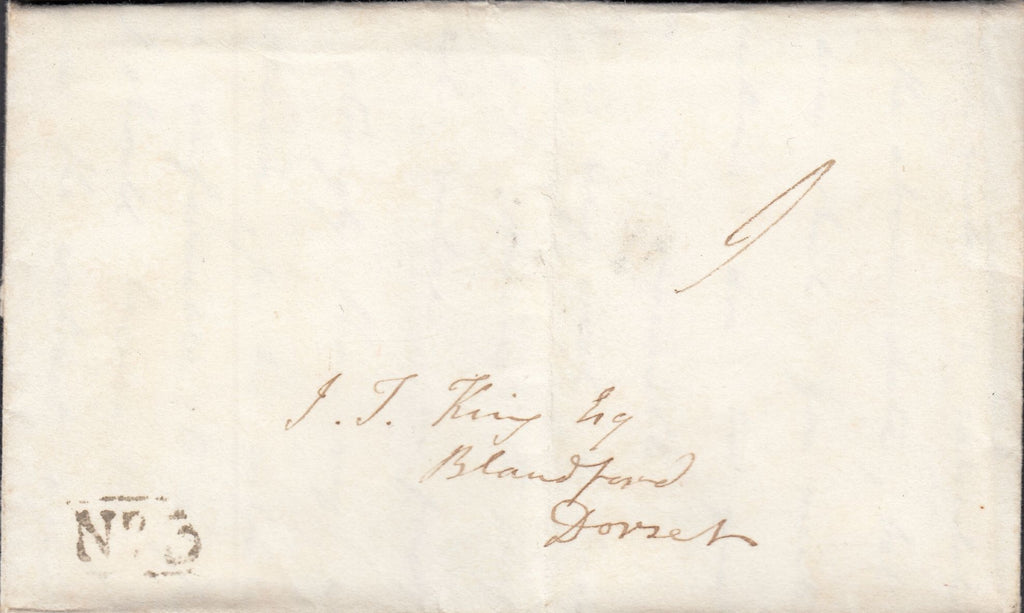 J. T. King Esq
Blandford
Dorset
No. 3